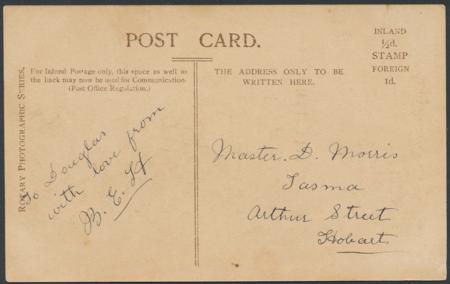 POST CARD.
INLAND
½d.
STAMP
FOREIGN
1d.
For Inland Postage only, this space as well as
the back may now be used for Communication.
(Post Office Regulation.)
THE ADDRESS ONLY TO BE
WRITTEN HERE.
ROTARY PHOTOGRAPHIC SERIES.
To Douglas
with love from
B. E. H
Master. D. Morris
Tasma
Arthur Street
Hobart